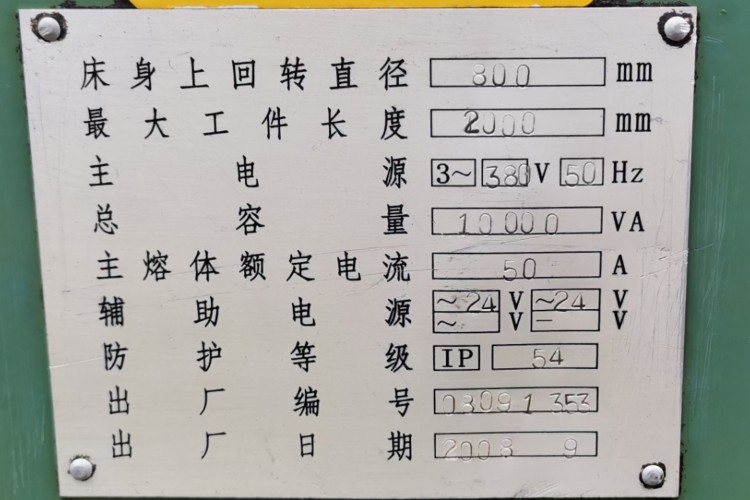 床身上回转直径 800 mm
最大工件长度 2000 mm
主电源 3~ 380 V 50 Hz
总容量 10000 VA
主熔体额定电流 50 A
辅助电源 ~24 V ~24 V
~ V — V
防护等级 IP 54
出厂编号 03091353
出厂日期 2008 9